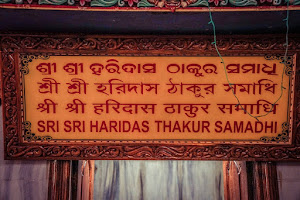 ଶ୍ରୀ ଶ୍ରୀ ହରିଦାସ ଠାକୁର ସମାଧି
শ্রী শ্রী হরিদাস ঠাকুর সমাধি
श्री श्री हरिदास ठाकुर समाधि
SRI SRI HARIDAS THAKUR SAMADHI